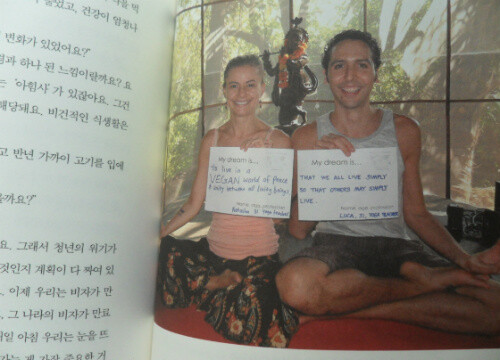 건강이 엄청나
변화가 있었어요?
하나 된 느낌이랄까요? 요
'아힘사'가 있잖아요. 그건
해당돼요. 비건적인 식생활은
고 반년 가까이 고기를 입에
까요?
요. 그래서 청년의 위기가
것인지 계획이 다 짜여 있
. 이제 우리는 비자가 만
. 그 나라의 비자가 만료
아침 우리는 눈을 뜨
게 가장 중요한 거
My dream is....
to live in a
VEGAN world of peace
& unity between all living beings!
Name, age, profession
Yoga teacher
My dream is....
THAT WE ALL LIVE SIMPLY
SO THAT OTHERS MAY SIMPLY
LIVE.
Name, age, profession
LUCA, 31, YOGA TEACHER